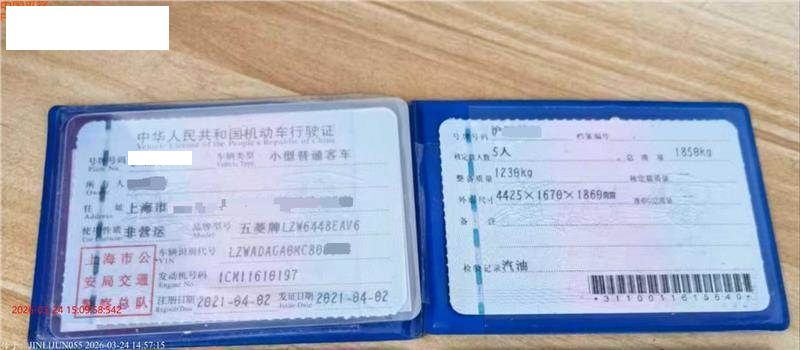 中华人民共和国机动车行驶证
Vehicle License of the People's Republic of China
号牌号码 车辆类型 小型普通客车
Plate No. Vehicle Type
所有人
Owner
住址 上海市
Address
使用性质 非营运 品牌型号 五菱牌LZW6448EAV6
Use Character Model
车辆识别代号 LZWADAGA0MC80
VIN
发动机号码 1CM11610197
Engine No.
注册日期 2021-04-02 发证日期 2021-04-02
Register Date Issue Date
上海市公
安局交通
警察总队
号牌号码 沪 档案编号
核定载人数 5人 总质量 1850kg
整备质量 1230kg 核定载质量
外廓尺寸 4425×1670×1860mm 准牵引总质量
备注
检验记录 汽油
*3110011619540*
2026-03-24 15:09:58:542
JINLIJUN055 2026-03-24 14:57:15